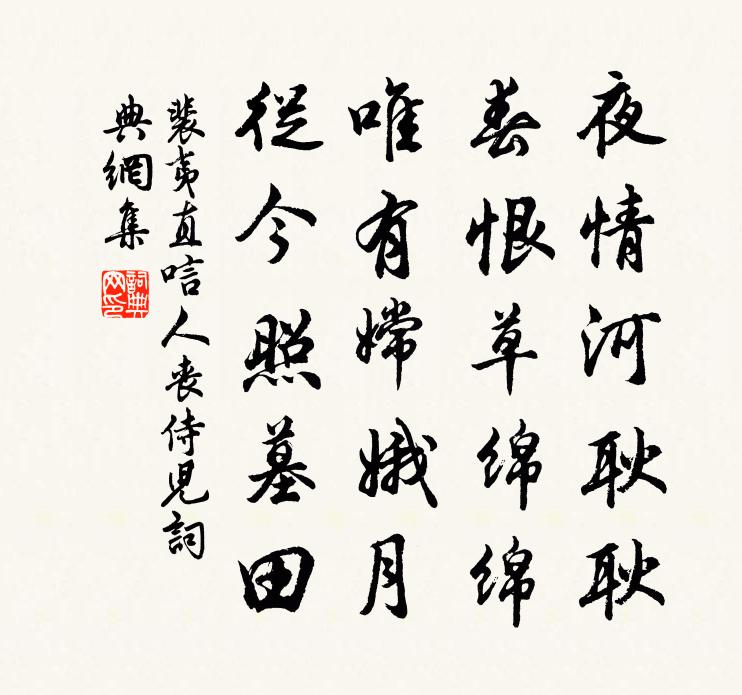 夜情河耿耿
春恨草绵绵
唯有嫦娥月
從今照墓田
裴夷直唁人喪侍児詞
典網集
詞典
网印